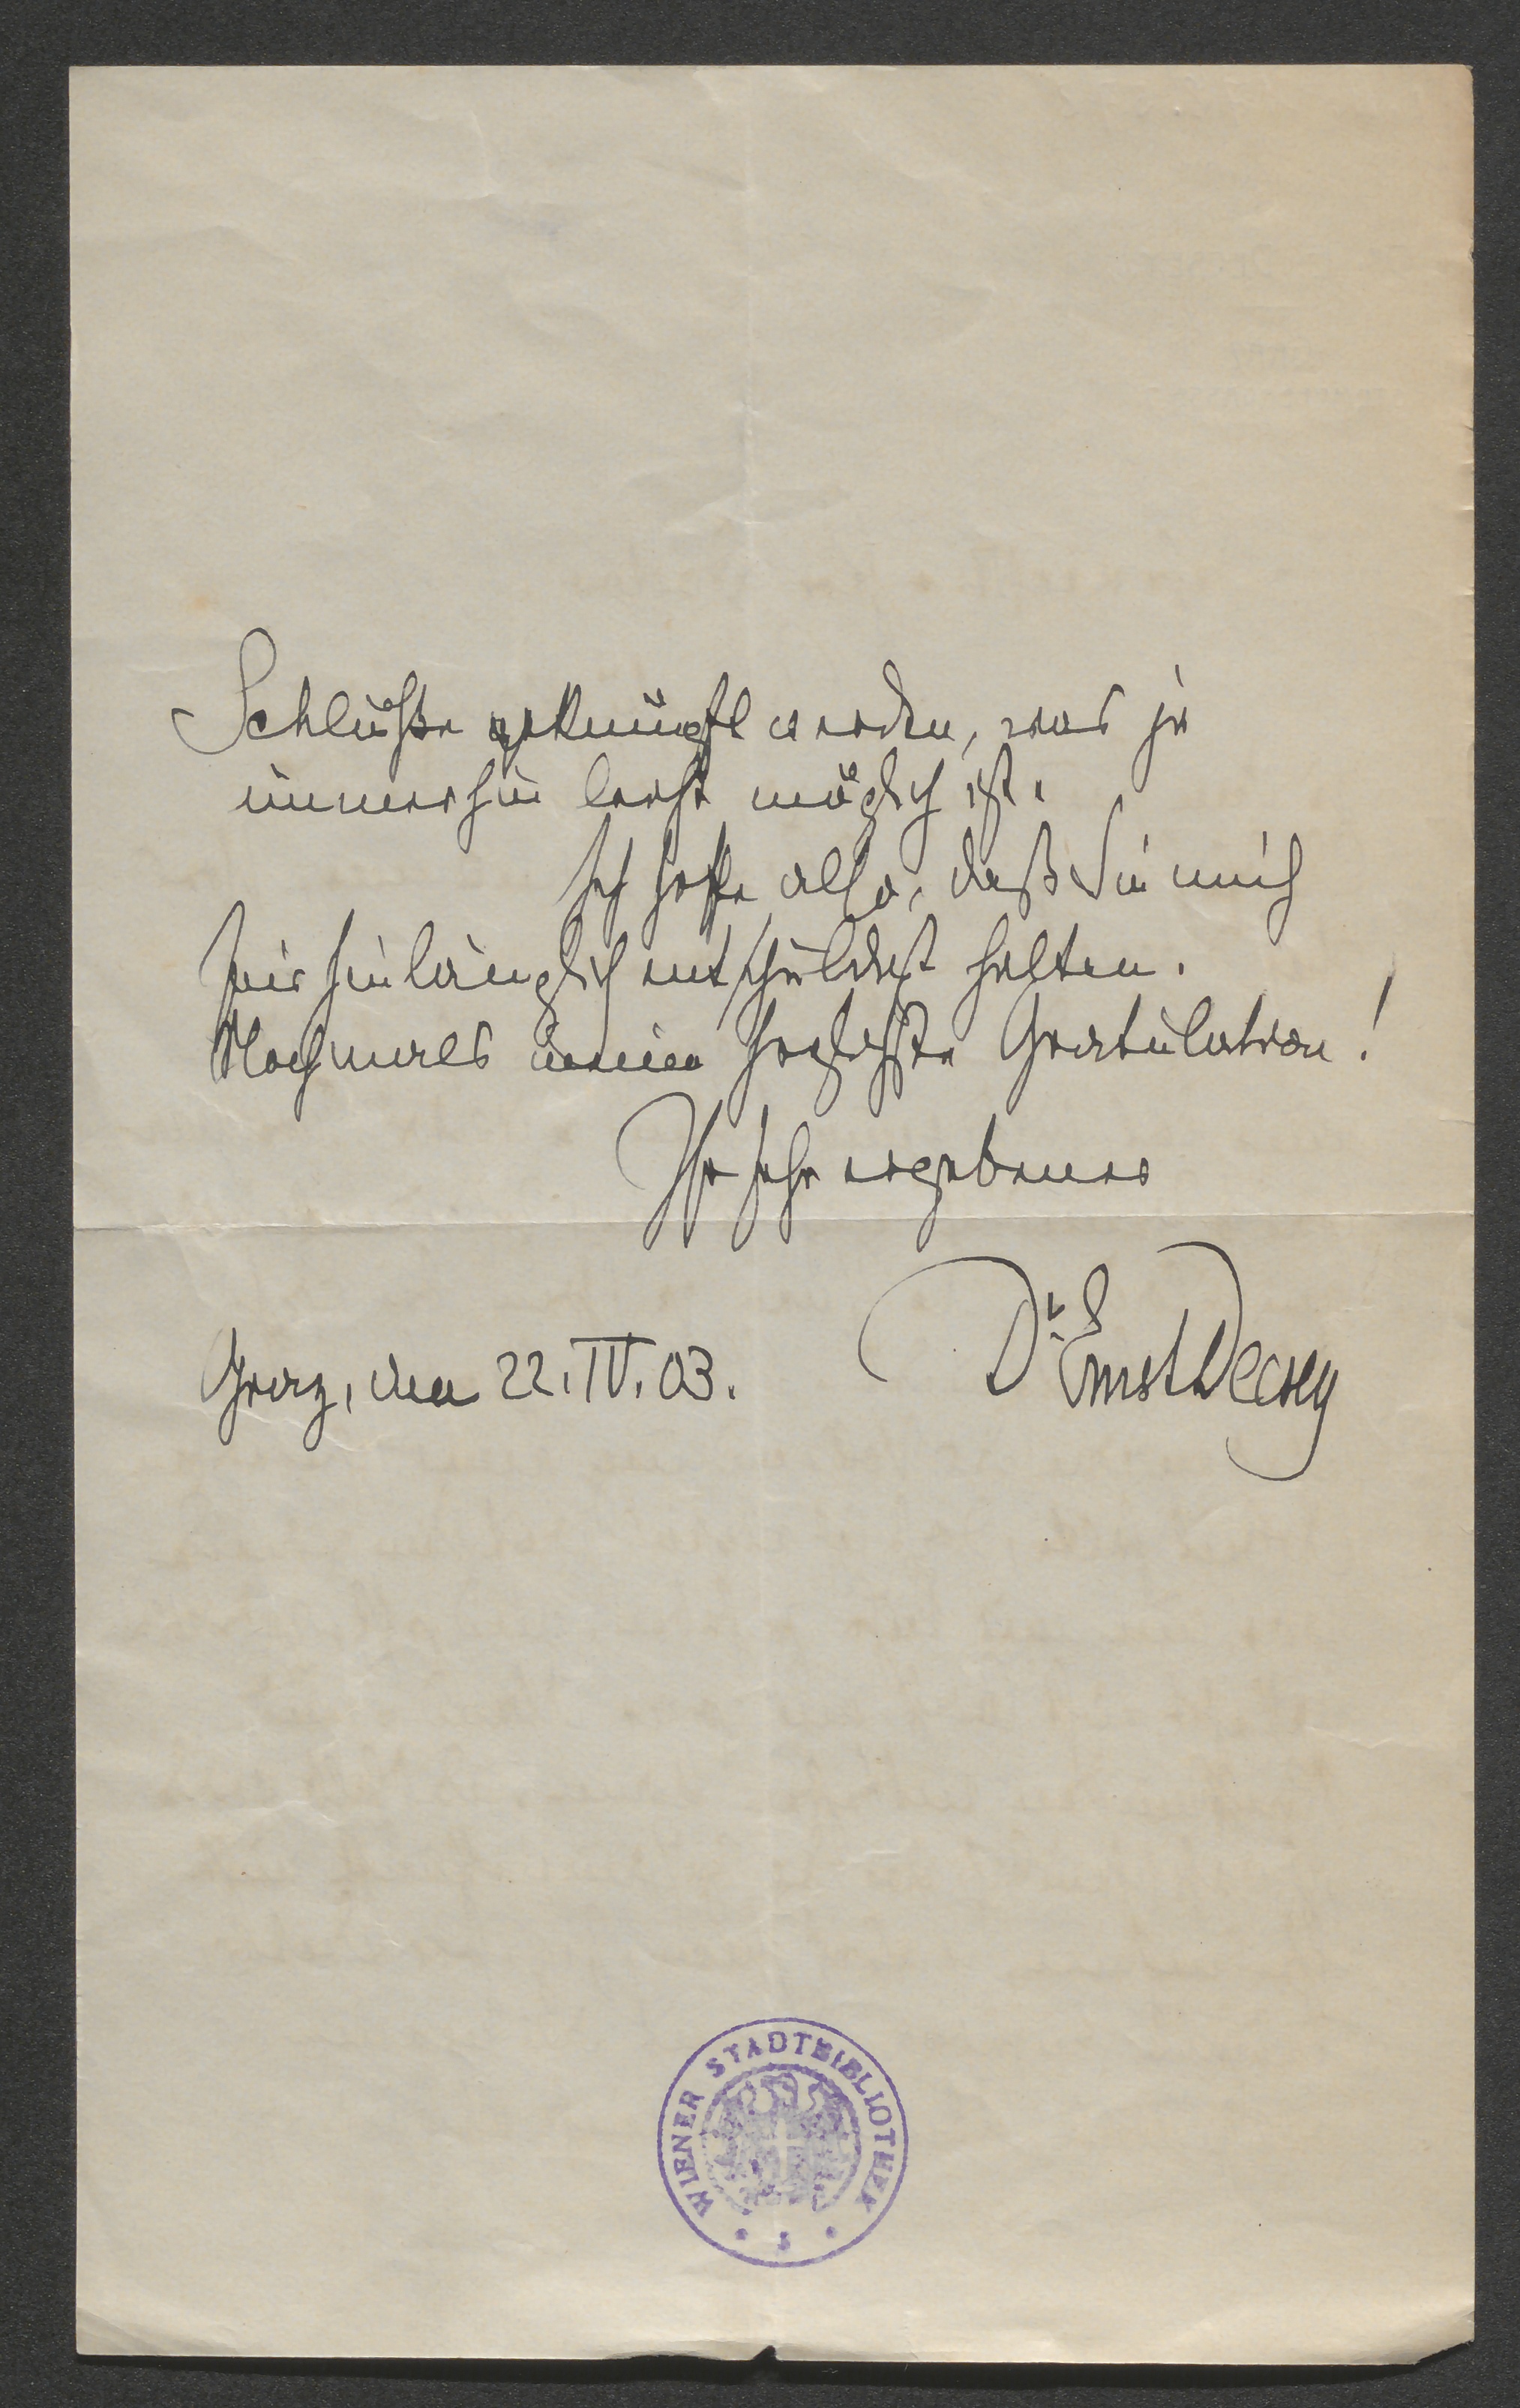 Schlüße geknüpft werden, was ja
immerhin leicht möglich ist.
Ich hoffe also, daß Sie mich
für hinlänglich entschuldigt halten.
Nochmals meine herzlichste Gratulation!
Ihr sehr ergebener
Dr. Ernst Decsey
Graz, den 22. IV. 03.
WIENER STADTBIBLIOTHEK